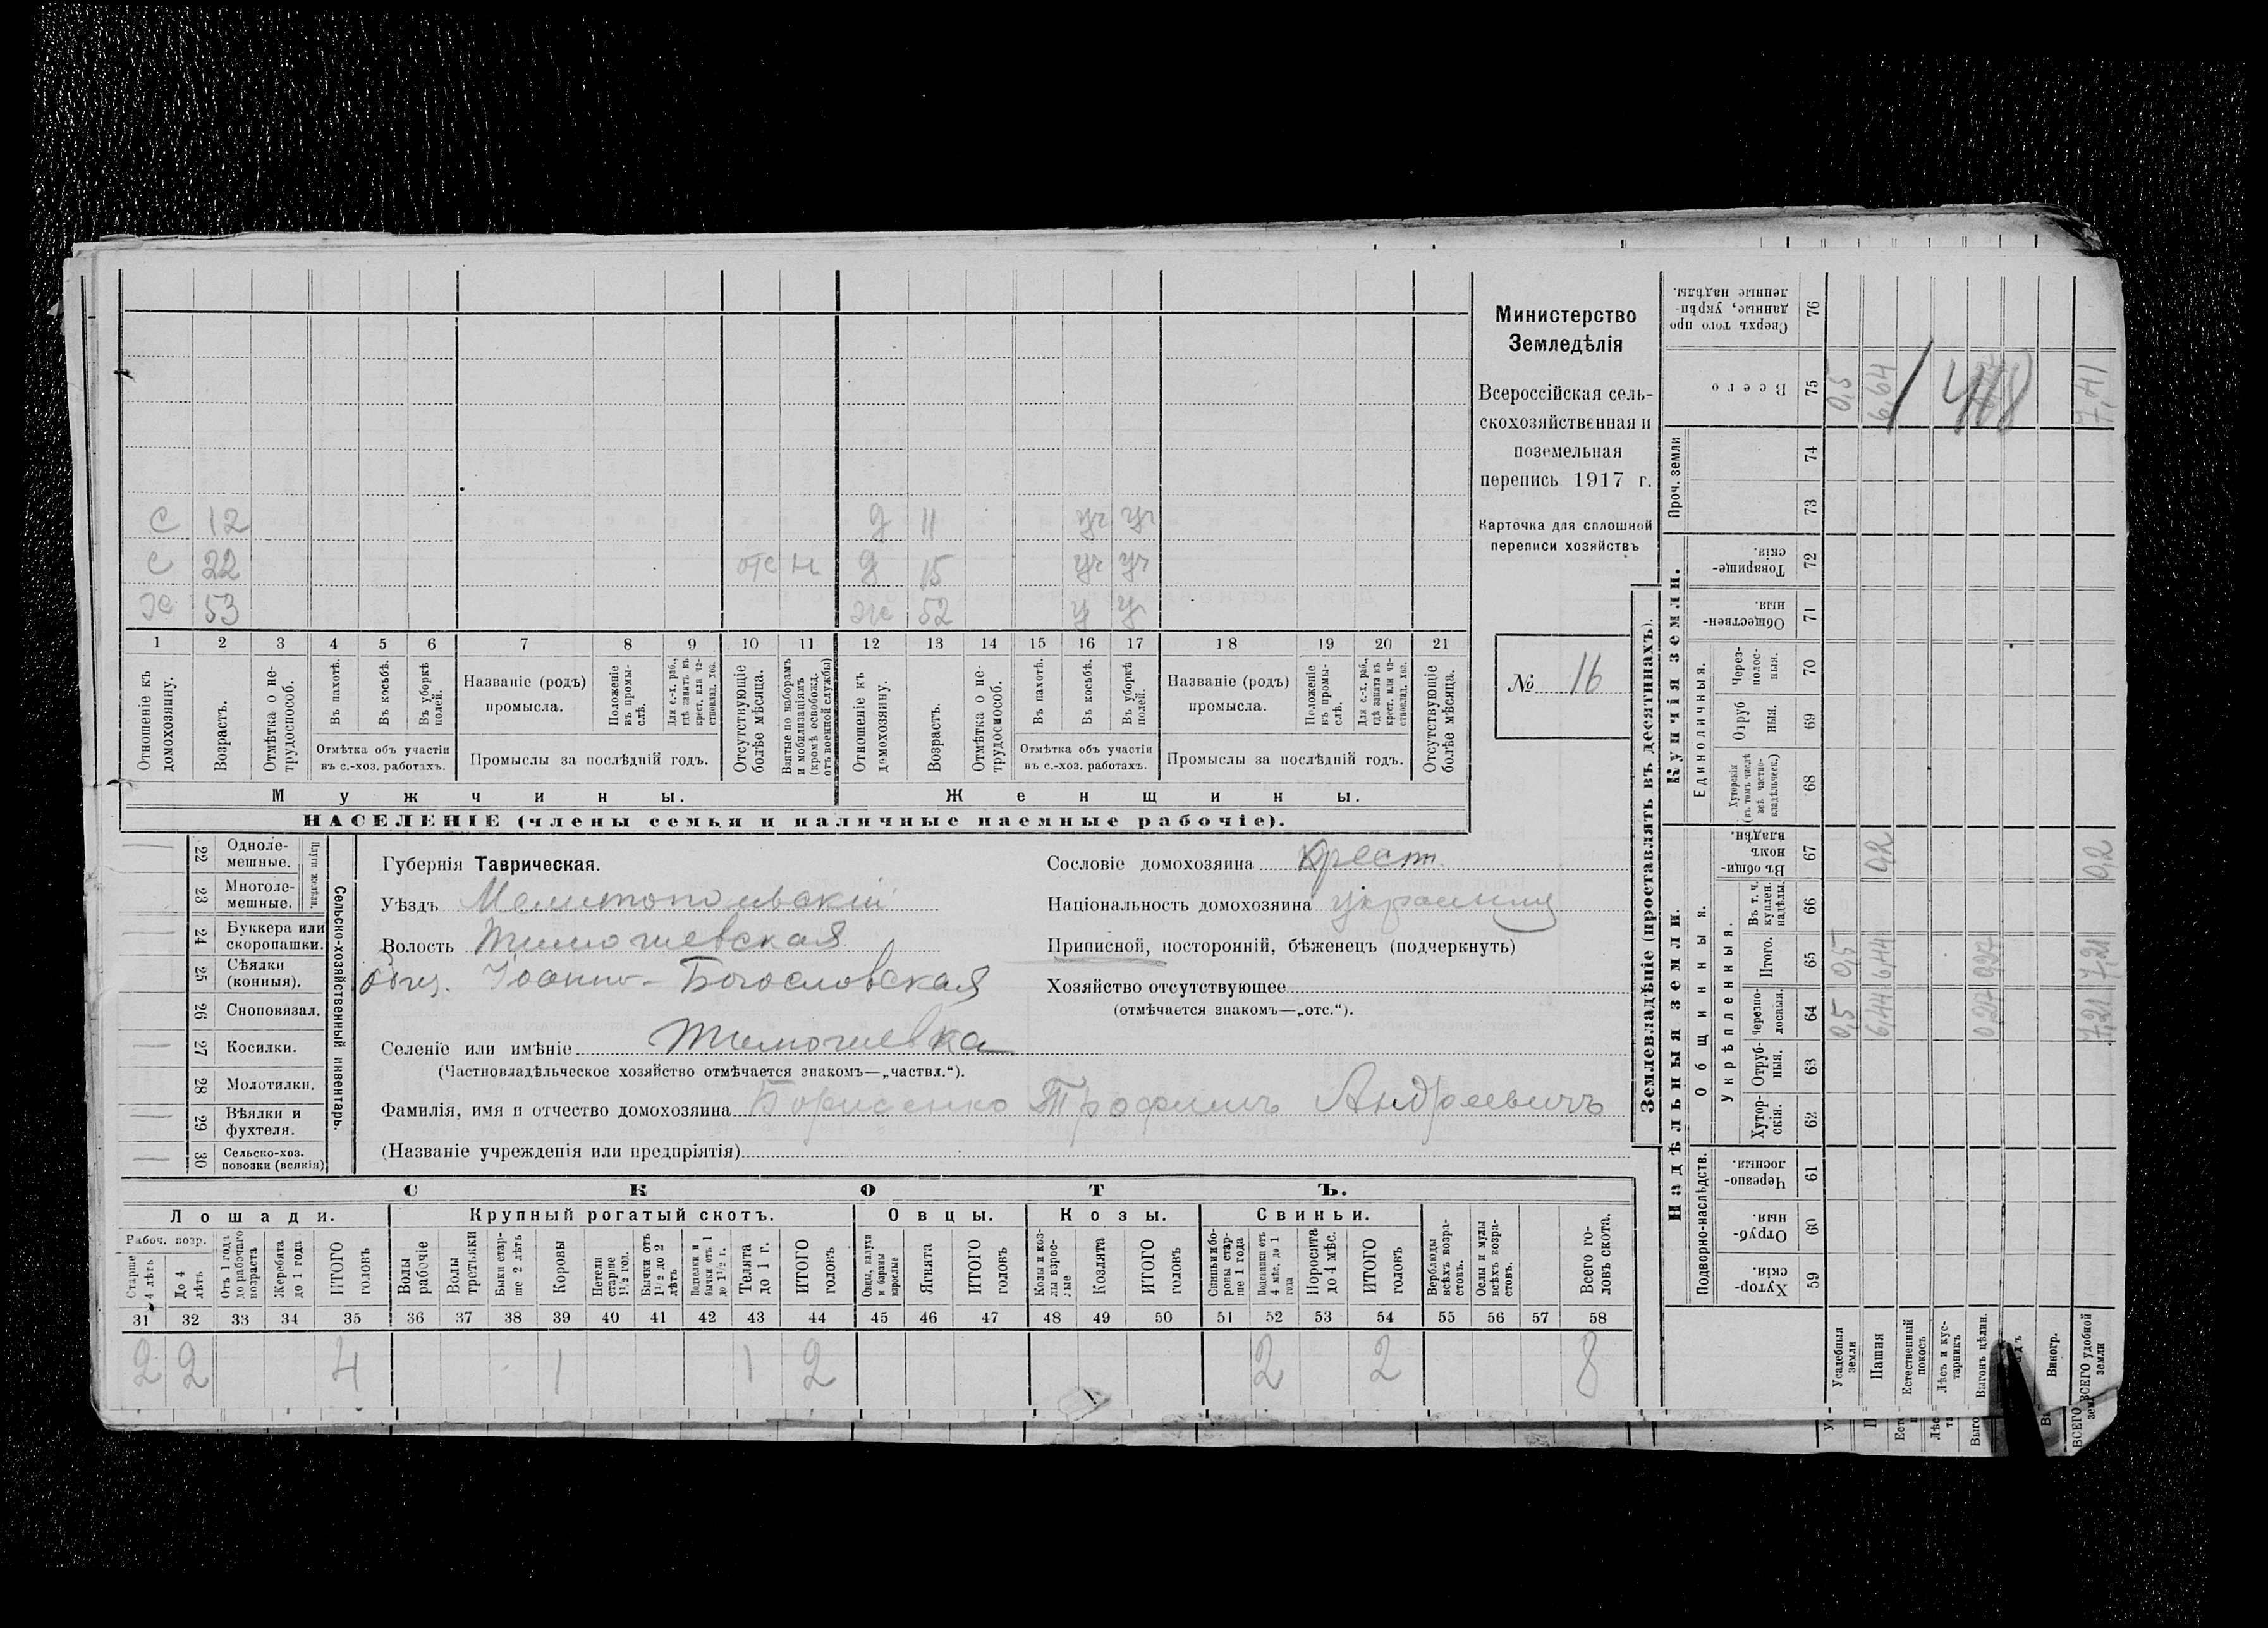 С 12 д 11 уч уч
С 22 отс н д 15 уч уч
Х 53 ж 52 у у
1 2 3 4 5 6 7 8 9 10 11 12 13 14 15 16 17 18 19 20 21
Отношеніе къ домохозяину.
Возрастъ.
Отмѣтка о нетрудоспособ.
Въ пахотѣ.
Въ косьбѣ.
Въ уборкѣ полей.
Отмѣтка объ участіи въ с.-хоз. работахъ.
Названіе (родъ) промысла.
Положеніе въ промыслѣ.
Для с.-х. раб., гдѣ занятъ въ крест. или частновлад. хоз.
Промыслы за послѣдній годъ.
Отсутствующіе болѣе мѣсяца.
Взятые по наборамъ и мобилизаціямъ (кромѣ освобожд. отъ военной службы)
Отношеніе къ домохозяину.
Возрастъ.
Отмѣтка о нетрудоспособ.
Въ пахотѣ.
Въ косьбѣ.
Въ уборкѣ полей.
Отмѣтка объ участіи въ с.-хоз. работахъ.
Названіе (родъ) промысла.
Положеніе въ промыслѣ.
Для с.-х. раб., гдѣ занята въ крест. или частновлад. хоз.
Промыслы за послѣдній годъ.
Отсутствующіе болѣе мѣсяца.
Мужчины. Женщины.
НАСЕЛЕНІЕ (члены семьи и наличные наемные рабочіе).
Министерство
Земледѣлія
Всероссійская сель-
скохозяйственная и
поземельная
перепись 1917 г.
Карточка для сплошной
переписи хозяйствъ
№ 16
22 Одноле-
мешные.
23 Многоле-
мешные.
Плуги желѣзн.
24 Буккера или
скоропашки.
25 Сѣялки
(конныя).
26 Сноповязал.
27 Косилки.
28 Молотилки.
29 Вѣялки и
фухтеля.
30 Сельско-хоз.
повозки (всякія)
Сельско-хозяйственный инвентарь.
Губернія Таврическая.
Уѣздъ Мелитопольскій
Волость Тимошевская
Общ. Іоанно-Богословская
Селеніе или имѣніе Тимошевка
(Частновладѣльческое хозяйство отмѣчается знакомъ—„частвл.“).
Фамилія, имя и отчество домохозяина Борисенко Трофимъ Андреевичъ
(Названіе учрежденія или предпріятія)
Сословіе домохозяина Крест.
Національность домохозяина украинец
Приписной, посторонній, бѣженецъ (подчеркнуть)
Хозяйство отсутствующее
(отмѣчается знакомъ—„отс.“).
СКОТЪ.
Лошади. Крупный рогатый скотъ. Овцы. Козы. Свиньи.
Рабоч. возр.
Старше 4 лѣтъ
До 4 лѣтъ
Отъ 1 года до рабочаго возраста
Жеребята до 1 года
ИТОГО головъ
Волы рабочіе
Волы третьяки
Быки старше 2 лѣтъ
Коровы
Нетели старше 1½ год.
Бычки отъ 1½ до 2 лѣтъ
Подтелки и бычки отъ 1 до 1½ г.
Телята до 1 г.
ИТОГО головъ
Овцы, валухи и бараны взрослые
Ягнята
ИТОГО головъ
Козы и козлы взрослые
Козлята
ИТОГО головъ
Свиньи и боровы старше 1 года
Подсвинки отъ 4 мѣс. до 1 года
Поросята до 4 мѣс.
ИТОГО головъ
Верблюды всѣхъ возрастовъ.
Ослы и мулы всѣхъ возрастовъ.
Всего головъ скота.
31 32 33 34 35 36 37 38 39 40 41 42 43 44 45 46 47 48 49 50 51 52 53 54 55 56 57 58
2 2 4 1 1 2 2 2 8
Землевладѣніе (проставлять въ десятинахъ).
Сверхъ того проданные, укрѣпленные надѣлы. 76
Всего 75 0,5 6,64 7,41
1 418
Проч. земли 74 73
Купчія земли.
Товарищескія. 72
Общественныя. 71
Единоличныя.
Черезполосныя. 70
Отрубныя. 69
Хуторскія (въ томъ числѣ всѣ частновладѣльческ.) 68
Надѣльныя земли.
Общинныя.
Въ общинномъ владѣн. 67 0,2 0,2
Укрѣпленныя.
Въ т. ч. куплен. надѣлы. 66
Итого. 65 0,5 6,44 0,27 7,21
Черезполосныя. 64 0,5 6,44 0,27 7,21
Отрубныя. 63
Хуторскія. 62
Подворно-наслѣдств.
Черезполосныя. 61
Отрубныя. 60
Хуторскія. 59
Усадебныя земли
Пашня
Естественный покосъ
Лѣсъ и кустарникъ
Выгонъ цѣлин.
Виногр.
ВСЕГО удобной земли